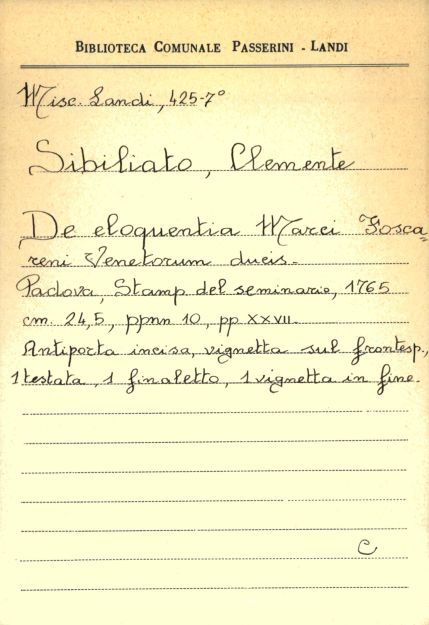 BIBLIOTECA COMUNALE PASSERINI - LANDI
Misc. Landi, 425-7°
Sibiliato, Clemente
De eloquentia Marci Fosca-
reni Venetorum ducis.
Padova, Stamp. del seminario, 1765
cm. 24,5, ppnn 10, pp. XXVII.
Antiporta incisa, vignetta sul frontesp.,
1 testata, 1 finaletto, 1 vignetta in fine.
C